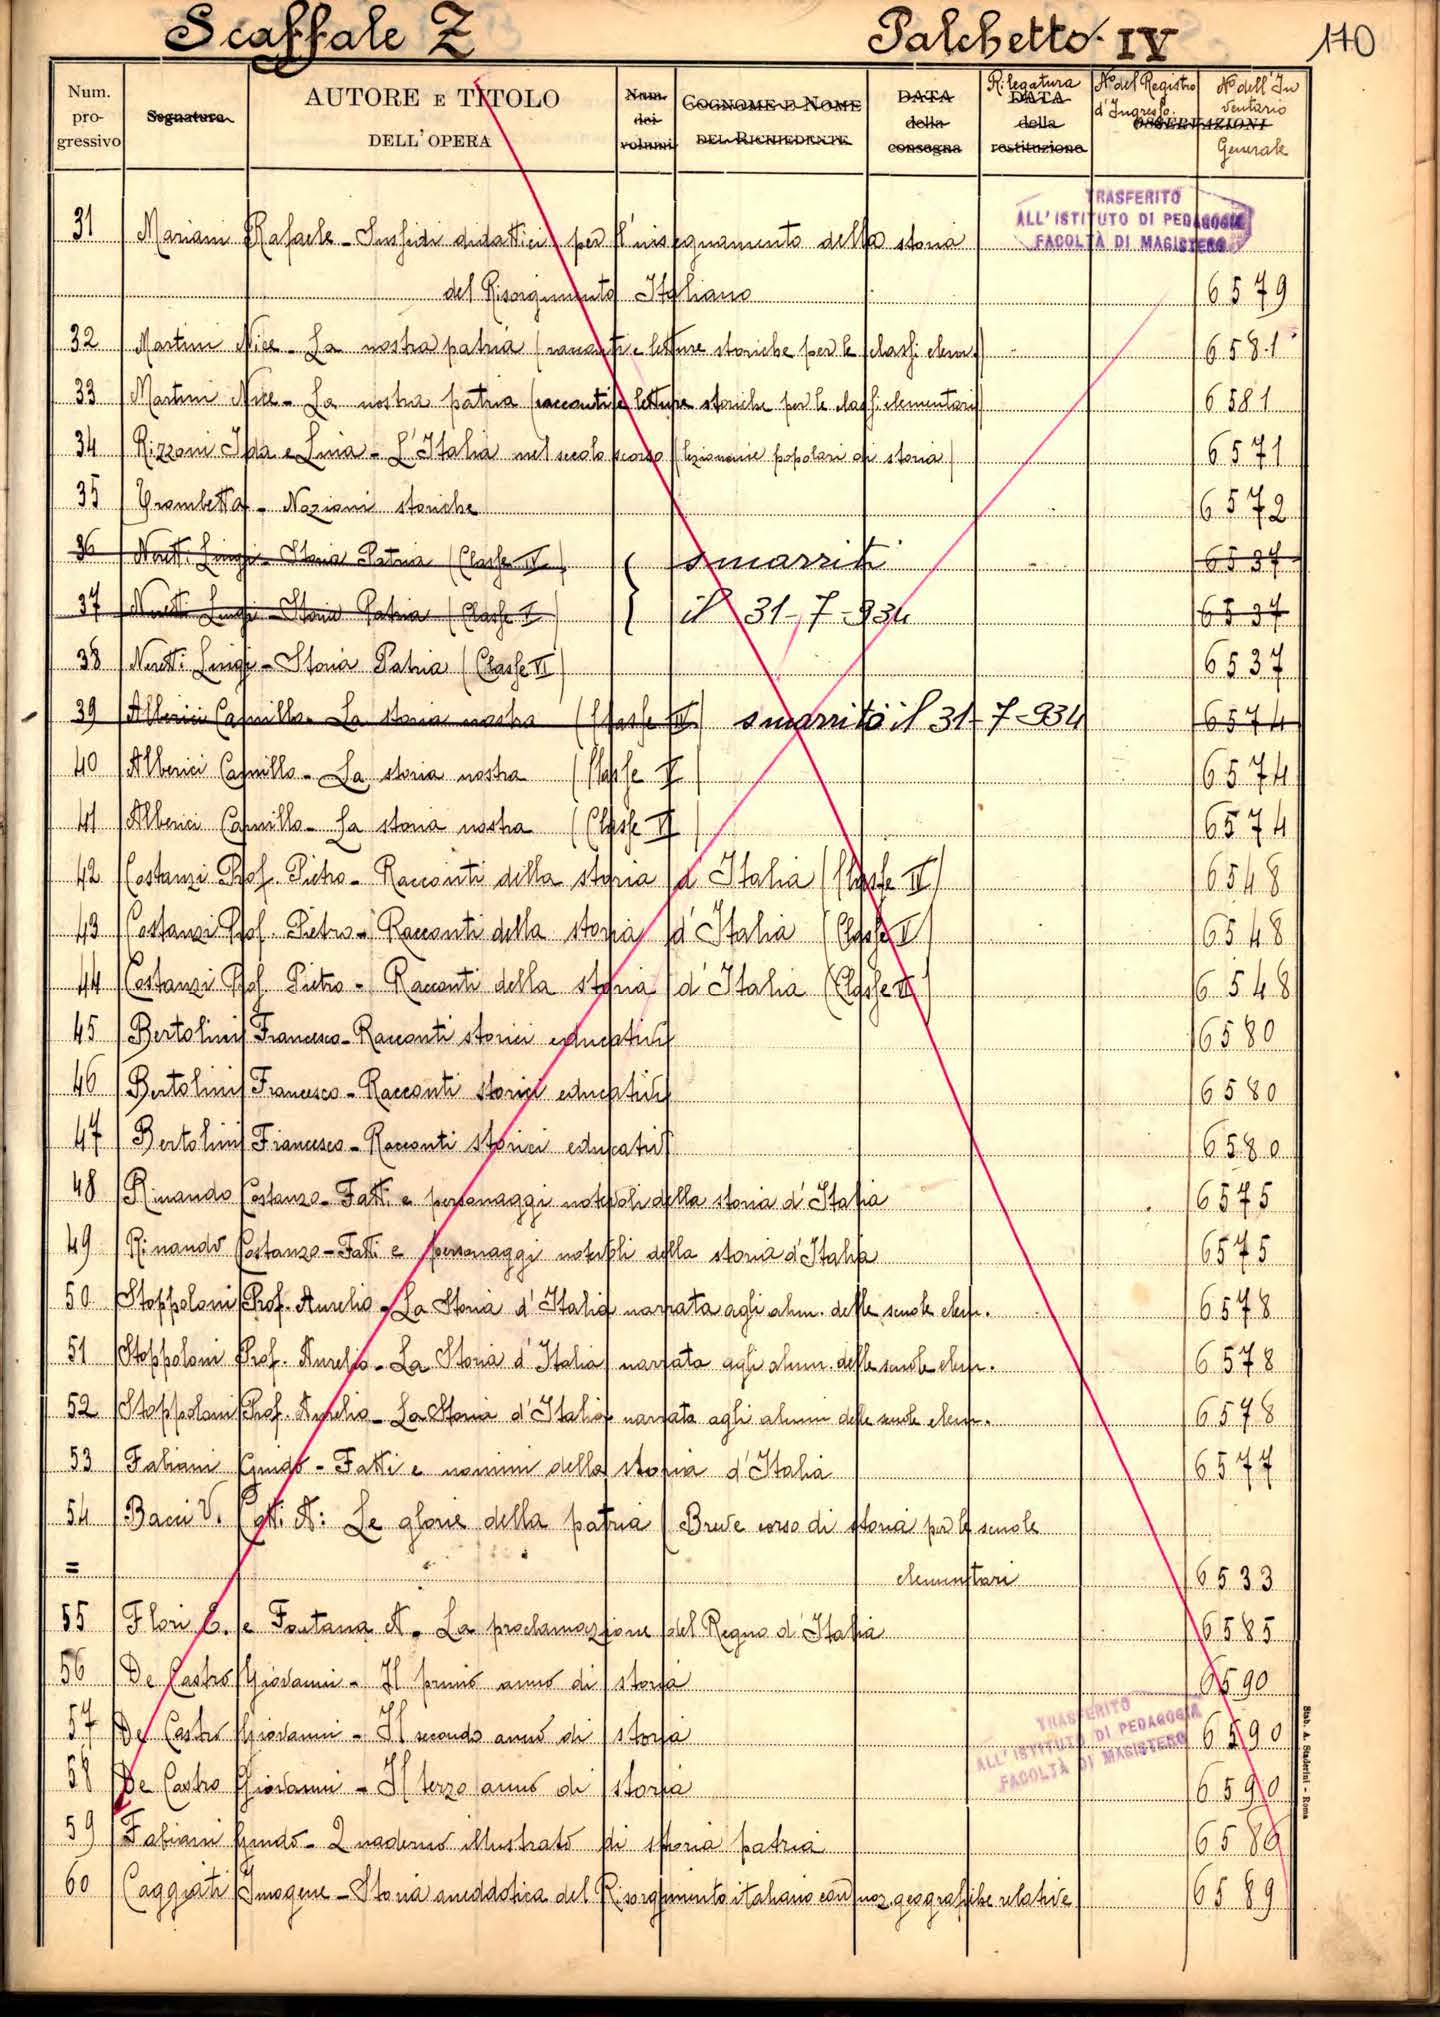 Scaffale Z Palchetto IV 110
Num. progressivo Segnatura AUTORE E TITOLO DELL'OPERA Num. dei volumi COGNOME E NOME DEL RICHIEDENTE DATA della consegna Rilegatura DATA della restituzione No del Registro d'Ingresso OSSERVAZIONI No dell'Inventario Generale
TRASFERITO
ALL'ISTITUTO DI PEDAGOGIA
FACOLTÀ DI MAGISTERO
31 Mariani Rafaele - Sussidi didattici per l'insegnamento della storia
del Risorgimento Italiano 6579
32 Martini Nice - La nostra patria (racconti e letture storiche per le classi elem.) 6581
33 Martini Nice - La nostra patria (racconti e letture storiche per le classi elementari) 6581
34 Rizzoni Ida e Livia - L'Italia nel secolo scorso (lezioncine popolari di storia) 6571
35 Trombetta - Nozioni storiche 6572
36 Neretti Luigi - Storia Patria (Classe IV) smarriti 6537
37 Neretti Luigi - Storia Patria (Classe V) il 31-7-934 6537
38 Neretti Luigi - Storia Patria (Classe VI) 6537
39 Alberici Camillo - La storia nostra (Classe IV) smarrito il 31-7-934 6574
40 Alberici Camillo - La storia nostra (Classe V) 6574
41 Alberici Camillo - La storia nostra (Classe VI) 6574
42 Costanzi Prof. Pietro - Racconti della storia d'Italia (Classe IV) 6548
43 Costanzi Prof. Pietro - Racconti della storia d'Italia (Classe V) 6548
44 Costanzi Prof. Pietro - Racconti della storia d'Italia (Classe VI) 6548
45 Bertolini Francesco - Racconti storici educativi 6580
46 Bertolini Francesco - Racconti storici educativi 6580
47 Bertolini Francesco - Racconti storici educativi 6580
48 Rinaudo Costanzo - Fatti e personaggi notevoli della storia d'Italia 6575
49 Rinaudo Costanzo - Fatti e personaggi notevoli della storia d'Italia 6575
50 Stoppoloni Prof. Aurelio - La Storia d'Italia narrata agli alun. delle scuole elem. 6578
51 Stoppoloni Prof. Aurelio - La Storia d'Italia narrata agli alunn. delle scuole elem. 6578
52 Stoppoloni Prof. Aurelio - La Storia d'Italia narrata agli alunni delle scuole elem. 6578
53 Fabiani Guido - Fatti e uomini della storia d'Italia 6577
54 Bacci V. Cotti A: Le glorie della patria (Breve corso di storia per le scuole
= elementari 6533
55 Flori E. e Fontana A. La proclamazione del Regno d'Italia 6585
56 De Castro Giovanni - Il primo anno di storia 6590
57 De Castro Giovanni - Il secondo anno di storia 6590
58 De Castro Giovanni - Il terzo anno di storia 6590
TRASFERITO
ALL'ISTITUTO DI PEDAGOGIA
FACOLTÀ DI MAGISTERO
59 Fabiani Guido - Quaderno illustrato di storia patria 6586
60 Caggiati Imogene - Storia aneddotica del Risorgimento italiano con noz. geografiche relative 6589
Stab. A. Staderini - Roma